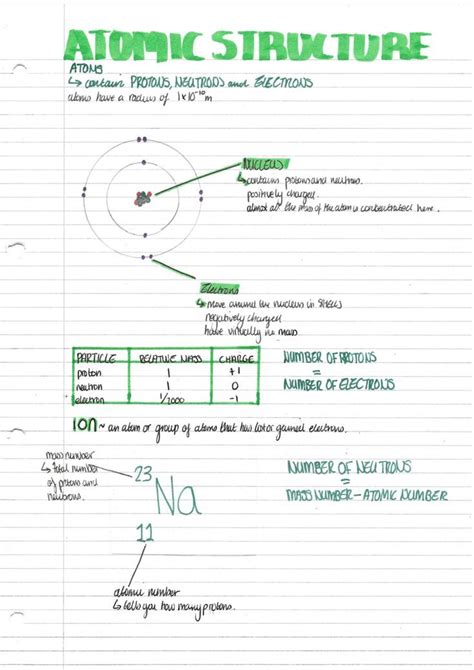 ATOMIC STRUCTURE
ATOMS
↳ contain PROTONS, NEUTRONS and ELECTRONS
atoms have a radius of 1x10⁻¹⁰ m
NUCLEUS
↳ contains protons and neutrons.
positively charged.
almost all the mass of the atom is concentrated here.
Electrons
↳ move around the nucleus in SHELLS
negatively charged
have virtually no mass
PARTICLE RELATIVE MASS CHARGE
proton 1 +1
neutron 1 0
electron 1/2000 -1
NUMBER OF PROTONS
=
NUMBER OF ELECTRONS
ION ~ an atom or group of atoms that has lost or gained electrons.
mass number
↳ total number
of protons and
neutrons.
23
Na
11
NUMBER OF NEUTRONS
=
MASS NUMBER - ATOMIC NUMBER
atomic number
↳ tells you how many protons.